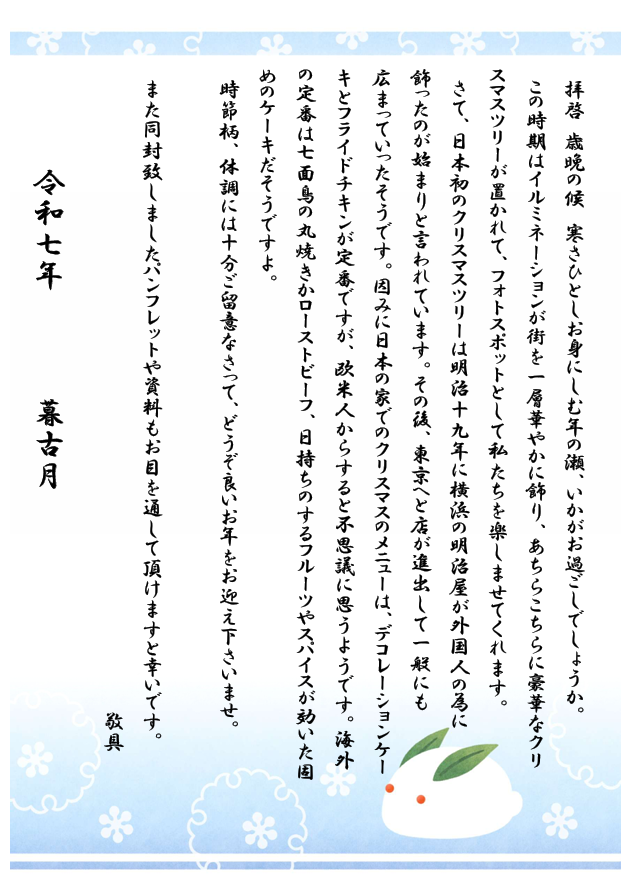 拝啓　歳晩の候　寒さひとしお身にしむ年の瀬、いかがお過ごしでしょうか。
この時期はイルミネーションが街を一層華やかに飾り、あちらこちらに豪華なクリ
スマスツリーが置かれて、フォトスポットとして私たちを楽しませてくれます。
さて、日本初のクリスマスツリーは明治十九年に横浜の明治屋が外国人の為に
飾ったのが始まりと言われています。その後、東京へと店が進出して一般にも
広まっていったそうです。因みに日本の家でのクリスマスのメニューは、デコレーションケー
キとフライドチキンが定番ですが、欧米人からすると不思議に思うようです。海外
の定番は七面鳥の丸焼きかローストビーフ、日持ちのするフルーツやスパイスが効いた固
めのケーキだそうですよ。
時節柄、体調には十分ご留意なさって、どうぞ良いお年をお迎え下さいませ。
また同封致しましたパンフレットや資料もお目を通して頂けますと幸いです。
敬具
令和七年　　　暮古月